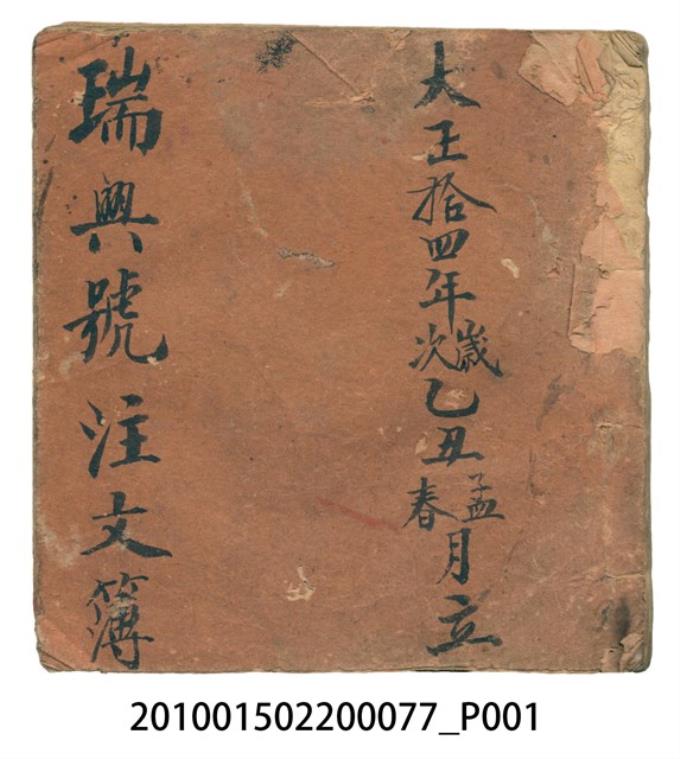 大正拾四年歲次乙丑孟春月立
瑞興號注文簿
201001502200077_P001